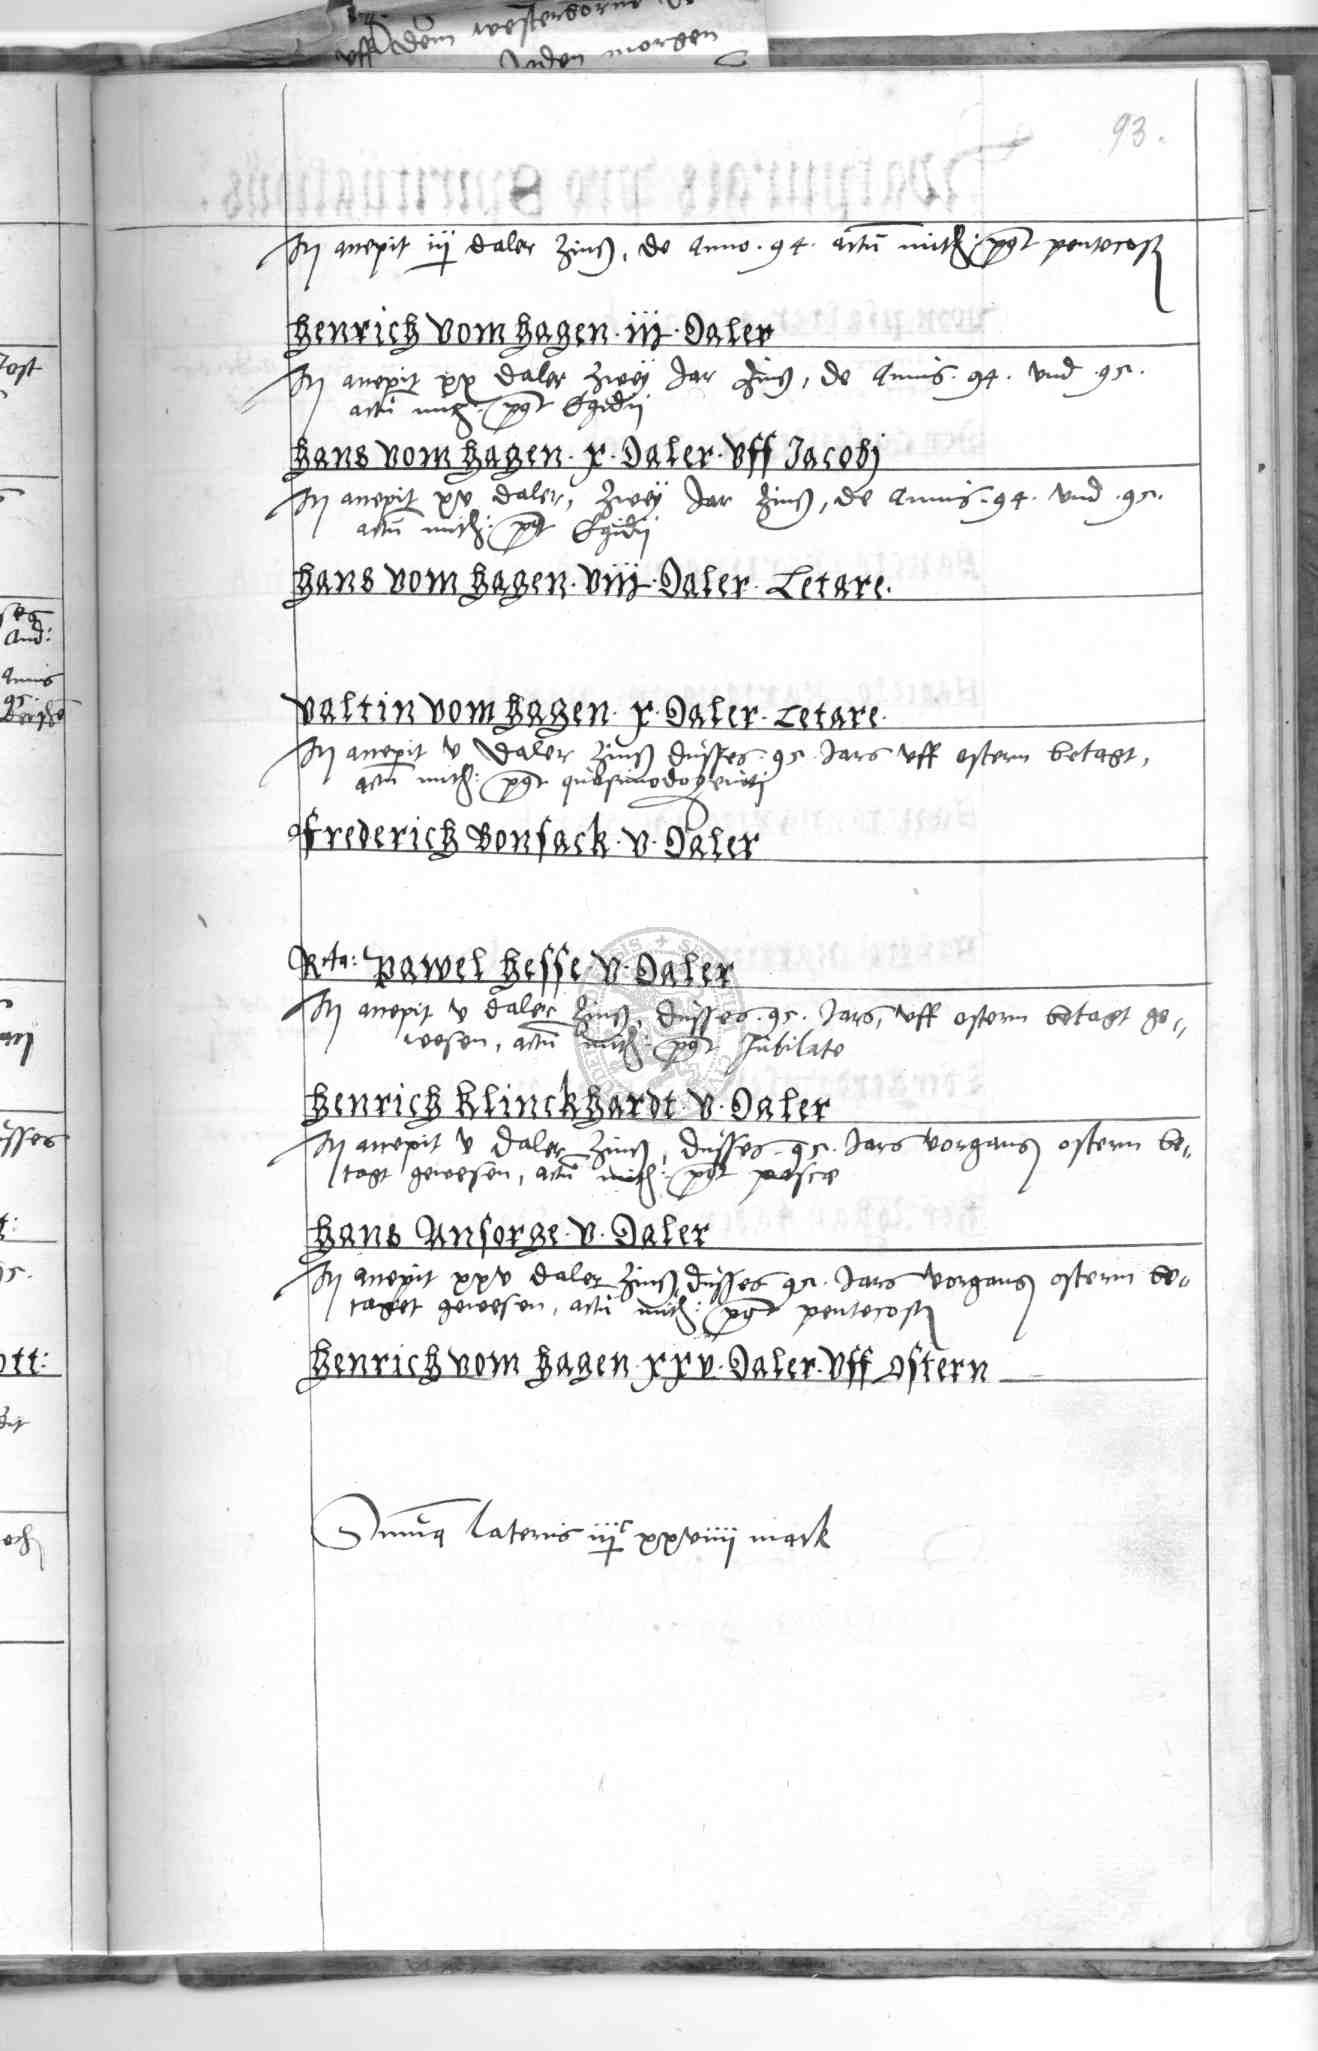 uff dem westerborne
Jden morgen
93.
accepit iij daler Zinß, de Anno. 94. actũ mitƷ: pgt pentecost
Henrich vom Hagen. iij. Daler
accepit xx daler Zwey Jar Zinß, de Annis. 94. vnd .95.
actũ mitƷ: pgt Egidij
Hans vom Hagen. x. Daler. Vff Jacobj
accepit xv daler, Zwey Jar Zinß, de Annis. 94. vnd .95.
actũ mitƷ: pgt Egidij
Hans vom Hagen. viij. Daler. Letare.
Valtin vom Hagen. x. Daler. Letare.
accepit v Daler Zinß düsses. 95. Jars vff ostern betagt,
actũ mitƷ: pgt quasimodogeniti
Frederich Bonsack. v. Daler
Rta: Pawel Hesse. v. Daler
accepit v daler Zinß, düsses. 95. Jars, vff ostern betagt ge„
wesen, actũ mitƷ: pgt Jubilate
Henrich Klinckhardt. v. Daler
accepit v daler Zinß, düsses. 95. Jars vorgang ostern be„
tagt gewesen, actũ mitƷ: pgt pascæ
Hans Ansorge. v. Daler
accepit xxv daler Zinß, düsses 95. Jars vorgang ostern be„
taget gewesen, actũ mitƷ: pgt pentecost
Henrich vom Hagen. xxv. Daler. Vff Ostern
Summa lateris iijc xxviiij marck